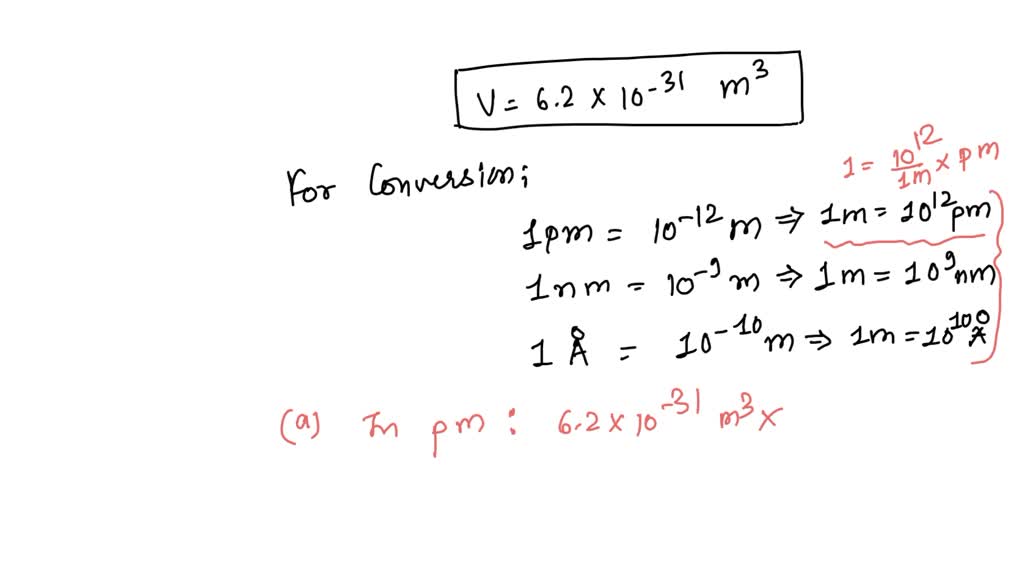 V = 6.2 × 10⁻³¹ m³
For Conversion;
1 = 10¹²/1m × pm
1pm = 10⁻¹² m ⇒ 1m = 10¹² pm
1nm = 10⁻⁹ m ⇒ 1m = 10⁹ nm
1 Å = 10⁻¹⁰ m ⇒ 1m = 10¹⁰ Å
(a) In pm : 6.2 × 10⁻³¹ m³ ×